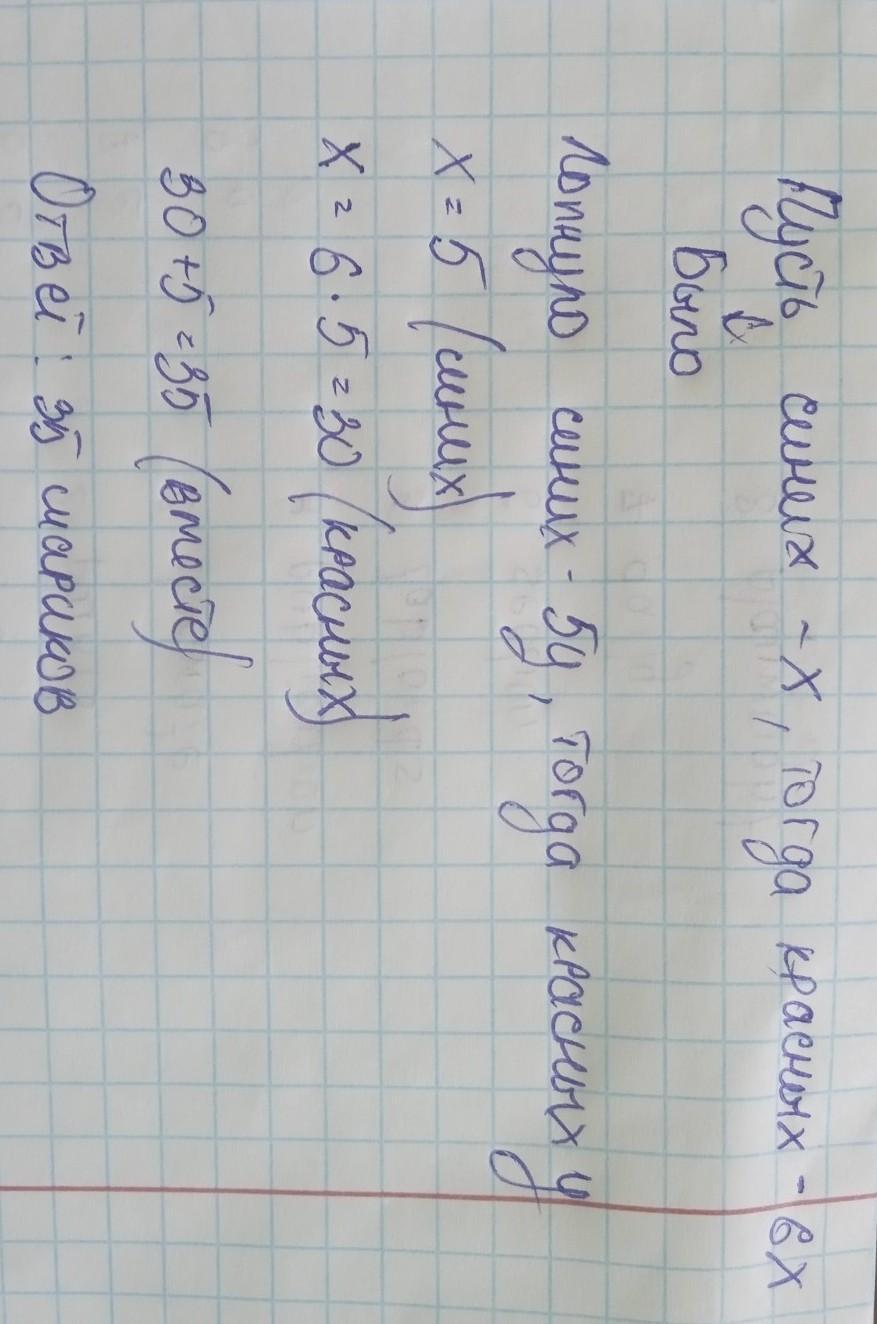 Пусть синих - х, тогда красных - 6х
было
Лопнуло синих - 5у, тогда красных у
х = 5 (синих)
х = 6 · 5 = 30 (красных)
30 + 5 = 35 (вместе)
Ответ: 35 шариков